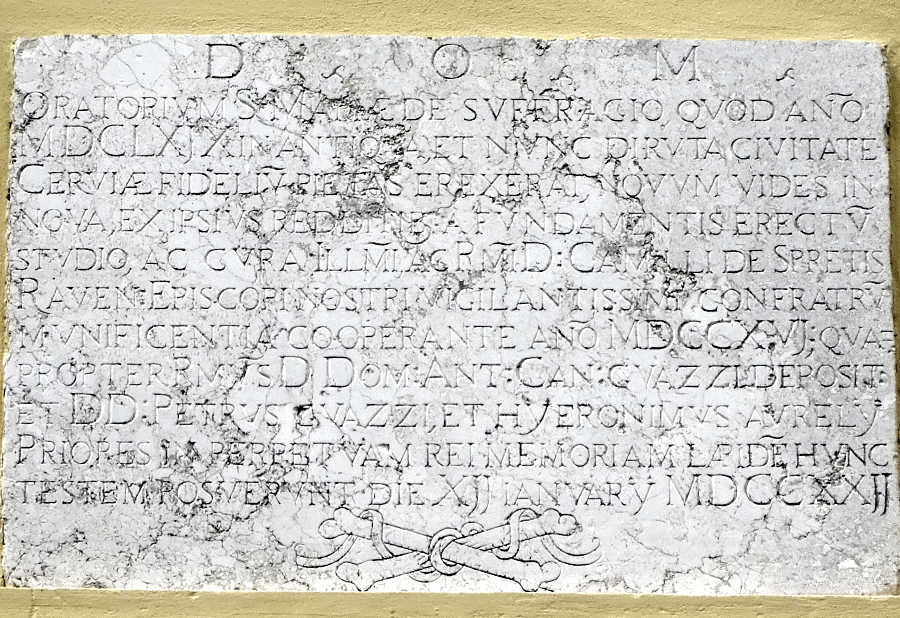 D O M
ORATORIVM S MARIÆ DE SVFFRAGIO, QVOD AÑO
MDCLXIX IN ANTIQVA, ET NVNC DIRVTA CIVITATE
CERVIÆ FIDELIV̄ PIETAS EREXERAT, NOVVM VIDES IN
NOVA, EX IPSIVS A FVNDAMENTIS ERECTV̄
STVDIO, AC CVRA ILLM̄I AC RM̄I D: CAMILLI DE SPRETIS
RAVEN: EPISCOPI NOSTRI VIGILANTISSIMI CONFRATRV̄
MVNIFICENTIA COOPERANTE AÑO MDCCXVJ; QVA=
PROPTER RM̄VS D DOM: ANT: CAN: GVAZZI DEPOSIT:
ET DD: PETRVS GVAZZI, ET HYERONIMVS AVRELY
PRIORES IN PERPETVAM REI MEMORIAM LAPIDĒ HVNC
TESTEM POSVERVNT DIE XIJ IANVARY MDCCXXIJ